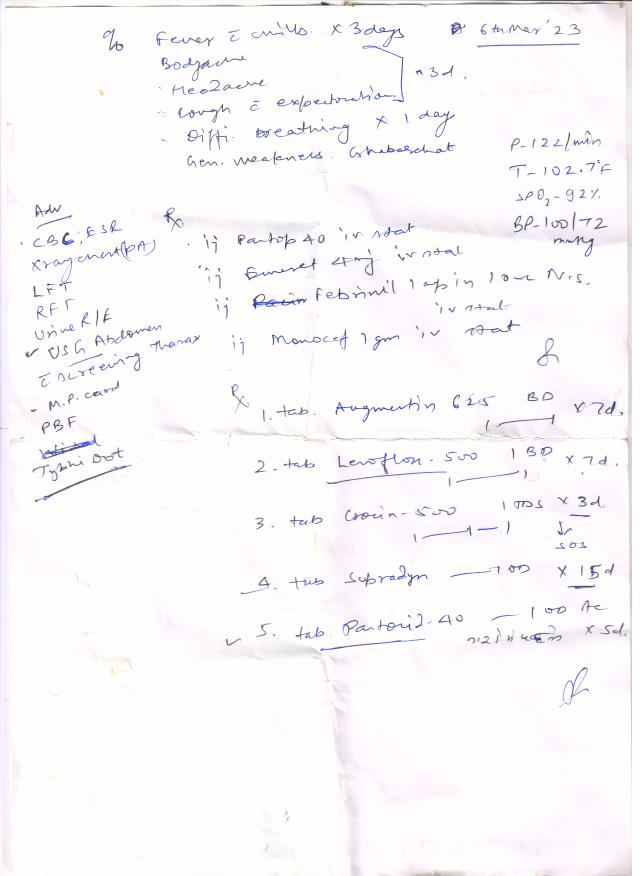 c/o Fever c̄ chills x 3 days
6th Mar'23
Bodyache
Headache
x 3d.
Cough c̄ expectoration
Diffi. breathing x 1 day
Gen. weakness. Ghabrahat
P-122/min
T-102.7°F
SPO2-92%
BP-100/72
mmHg
Adv
CBC, ESR
Xray chest (PA)
LFT
RFT
Urine R/E
✓ USG Abdomen
c̄ screening Thorax
- M.P. card
PBF
Typhi Dot
Rx
ij Pantop 40 iv stat
ij Emeset 4mg iv stat
ij Febrinil 1 amp in 100 N.S.
iv stat
ij Monocef 1 gm iv stat
Rx
1. tab. Augmentin 625 BD x 7d.
2. tab Levoflox-500 1 BD x 7d.
3. tab Crocin-500 1 TDS x 3d
↓
SOS
4. tab Supradyn — 1 OD x 15d
✓ 5. tab. Pantocid-40 — 1 OD Ac
x 5d.